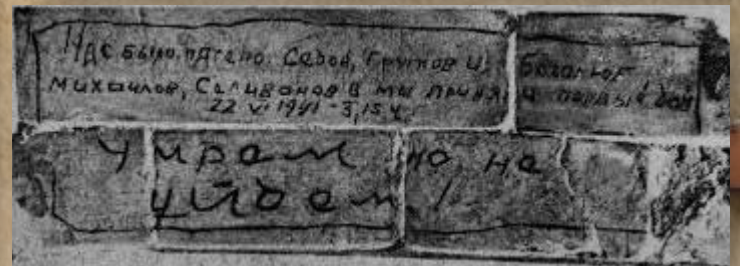 Нас было пятеро: Седов, Грутов И, Боголюб,
Михайлов, Селиванов В. мы приняли первый бой
22.VI.1941 - 3,15 ч.
Умрем но не
уйдем!